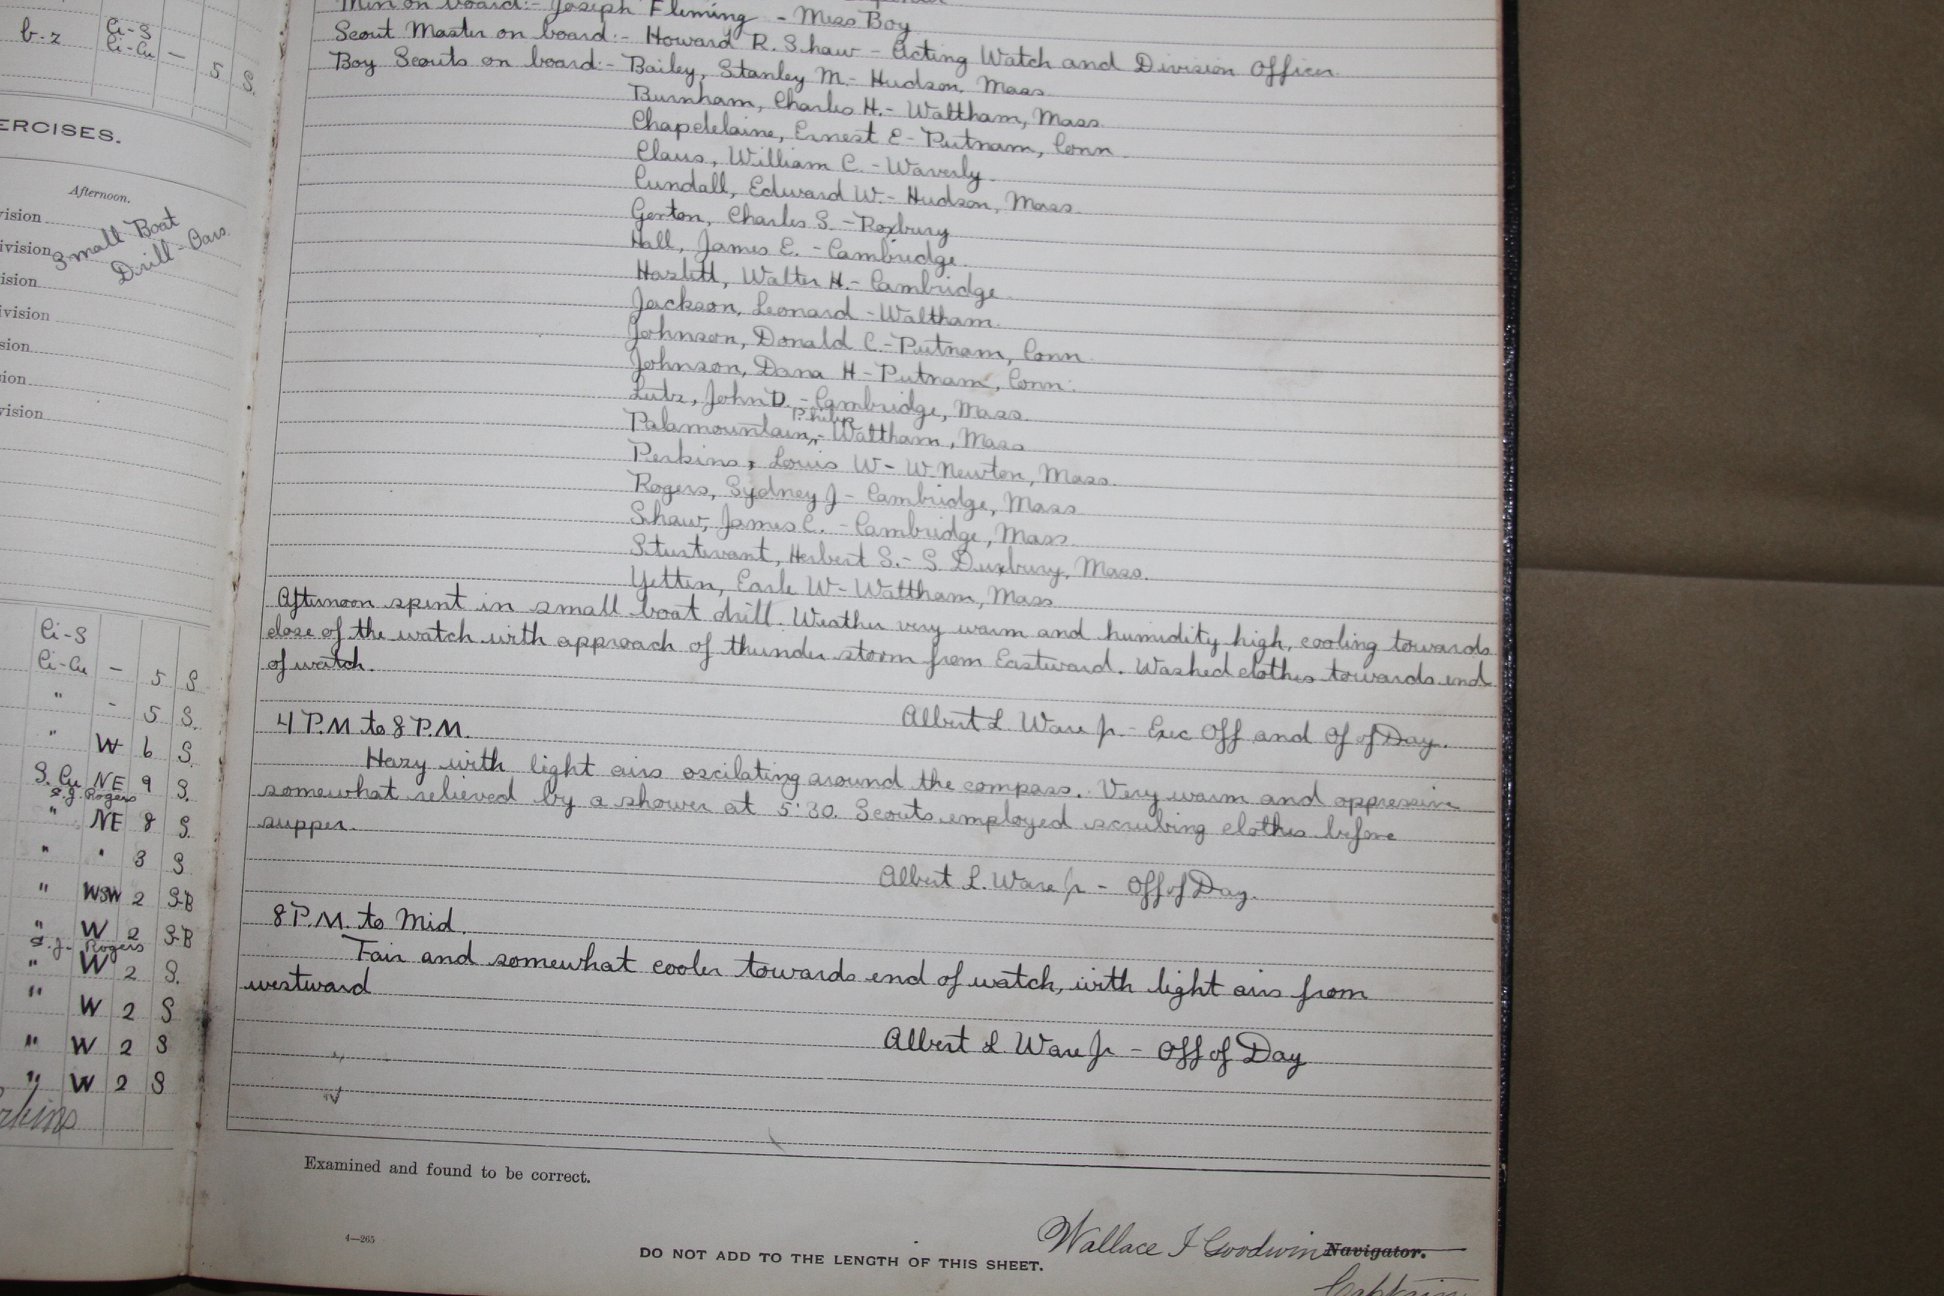 b-z Ci-S
Ci-Cu - 5 S.
ERCISES.
Afternoon.
vision
ivision Small Boat
Drill-Oars
ision
ivision
sion
ion
vision
Ci-S
Ci-Cu - 5 S
" - 5 S.
" W 6 S.
S. Cu NE 9 S.
S.J. Rogers
" NE 8 S.
" " 3 S
" WSW 2 S-B
" W 2 S-B
S.J. Rogers
" W 2 S.
" W 2 S
" W 2 S
" W 2 S
rkins
Men on board:- Joseph Fleming - Mess Boy
Scout Master on board:- Howard R. Shaw - Acting Watch and Division Officer
Boy Scouts on board:- Bailey, Stanley M.- Hudson, Mass.
Burnham, Charles H.- Waltham, Mass.
Chapdelaine, Ernest E- Putnam, Conn.
Claus, William C.- Waverly.
Cundall, Edward W.- Hudson, Mass.
Gerton, Charles S.- Roxbury
Hall, James E. - Cambridge.
Hazlett, Walter H.- Cambridge.
Jackson, Leonard - Waltham.
Johnson, Donald C.- Putnam, Conn.
Johnson, Dana H- Putnam, Conn.
Lutz, John D. - Cambridge, Mass.
Palamountain, Philip - Waltham, Mass
Perkins, Louis W- W. Newton, Mass.
Rogers, Sydney J- Cambridge, Mass
Shaw, James C. - Cambridge, Mass.
Sturtevant, Herbert S.- S. Duxbury, Mass.
Yetten, Earle W- Waltham, Mass
Afternoon spent in small boat drill. Weather very warm and humidity high, cooling towards
close of the watch with approach of thunder storm from Eastward. Washed clothes towards end
of watch.
Albert L. Ware Jr.- Exec Off and Of of Day.
4 P.M to 8 P.M.
Hazy with light airs oscilating around the compass. Very warm and oppressive
somewhat relieved by a shower at 5:30. Scouts employed scrubing clothes before
supper.
Albert L. Ware Jr - Off of Day.
8 P.M. to Mid.
Fair and somewhat cooler towards end of watch, with light airs from
westward
Albert L. Ware Jr - Off of Day
Examined and found to be correct.
Wallace I Goodwin Navigator.
Captain
4—265
DO NOT ADD TO THE LENGTH OF THIS SHEET.